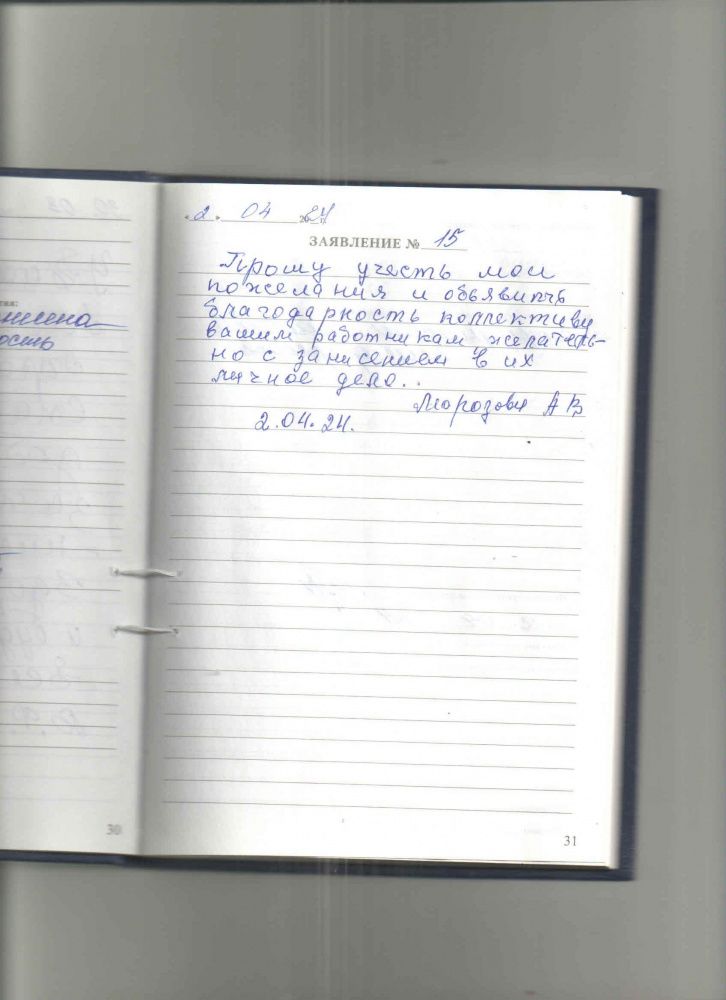 « 2 » 04 2024
ЗАЯВЛЕНИЕ № 15
Прошу учесть мои
пожелания и объявить
благодарность коллективу
вашим работникам желатель-
но с занисением в их
личное дело..
Морозова А В
2.04.24.
ость
30
31